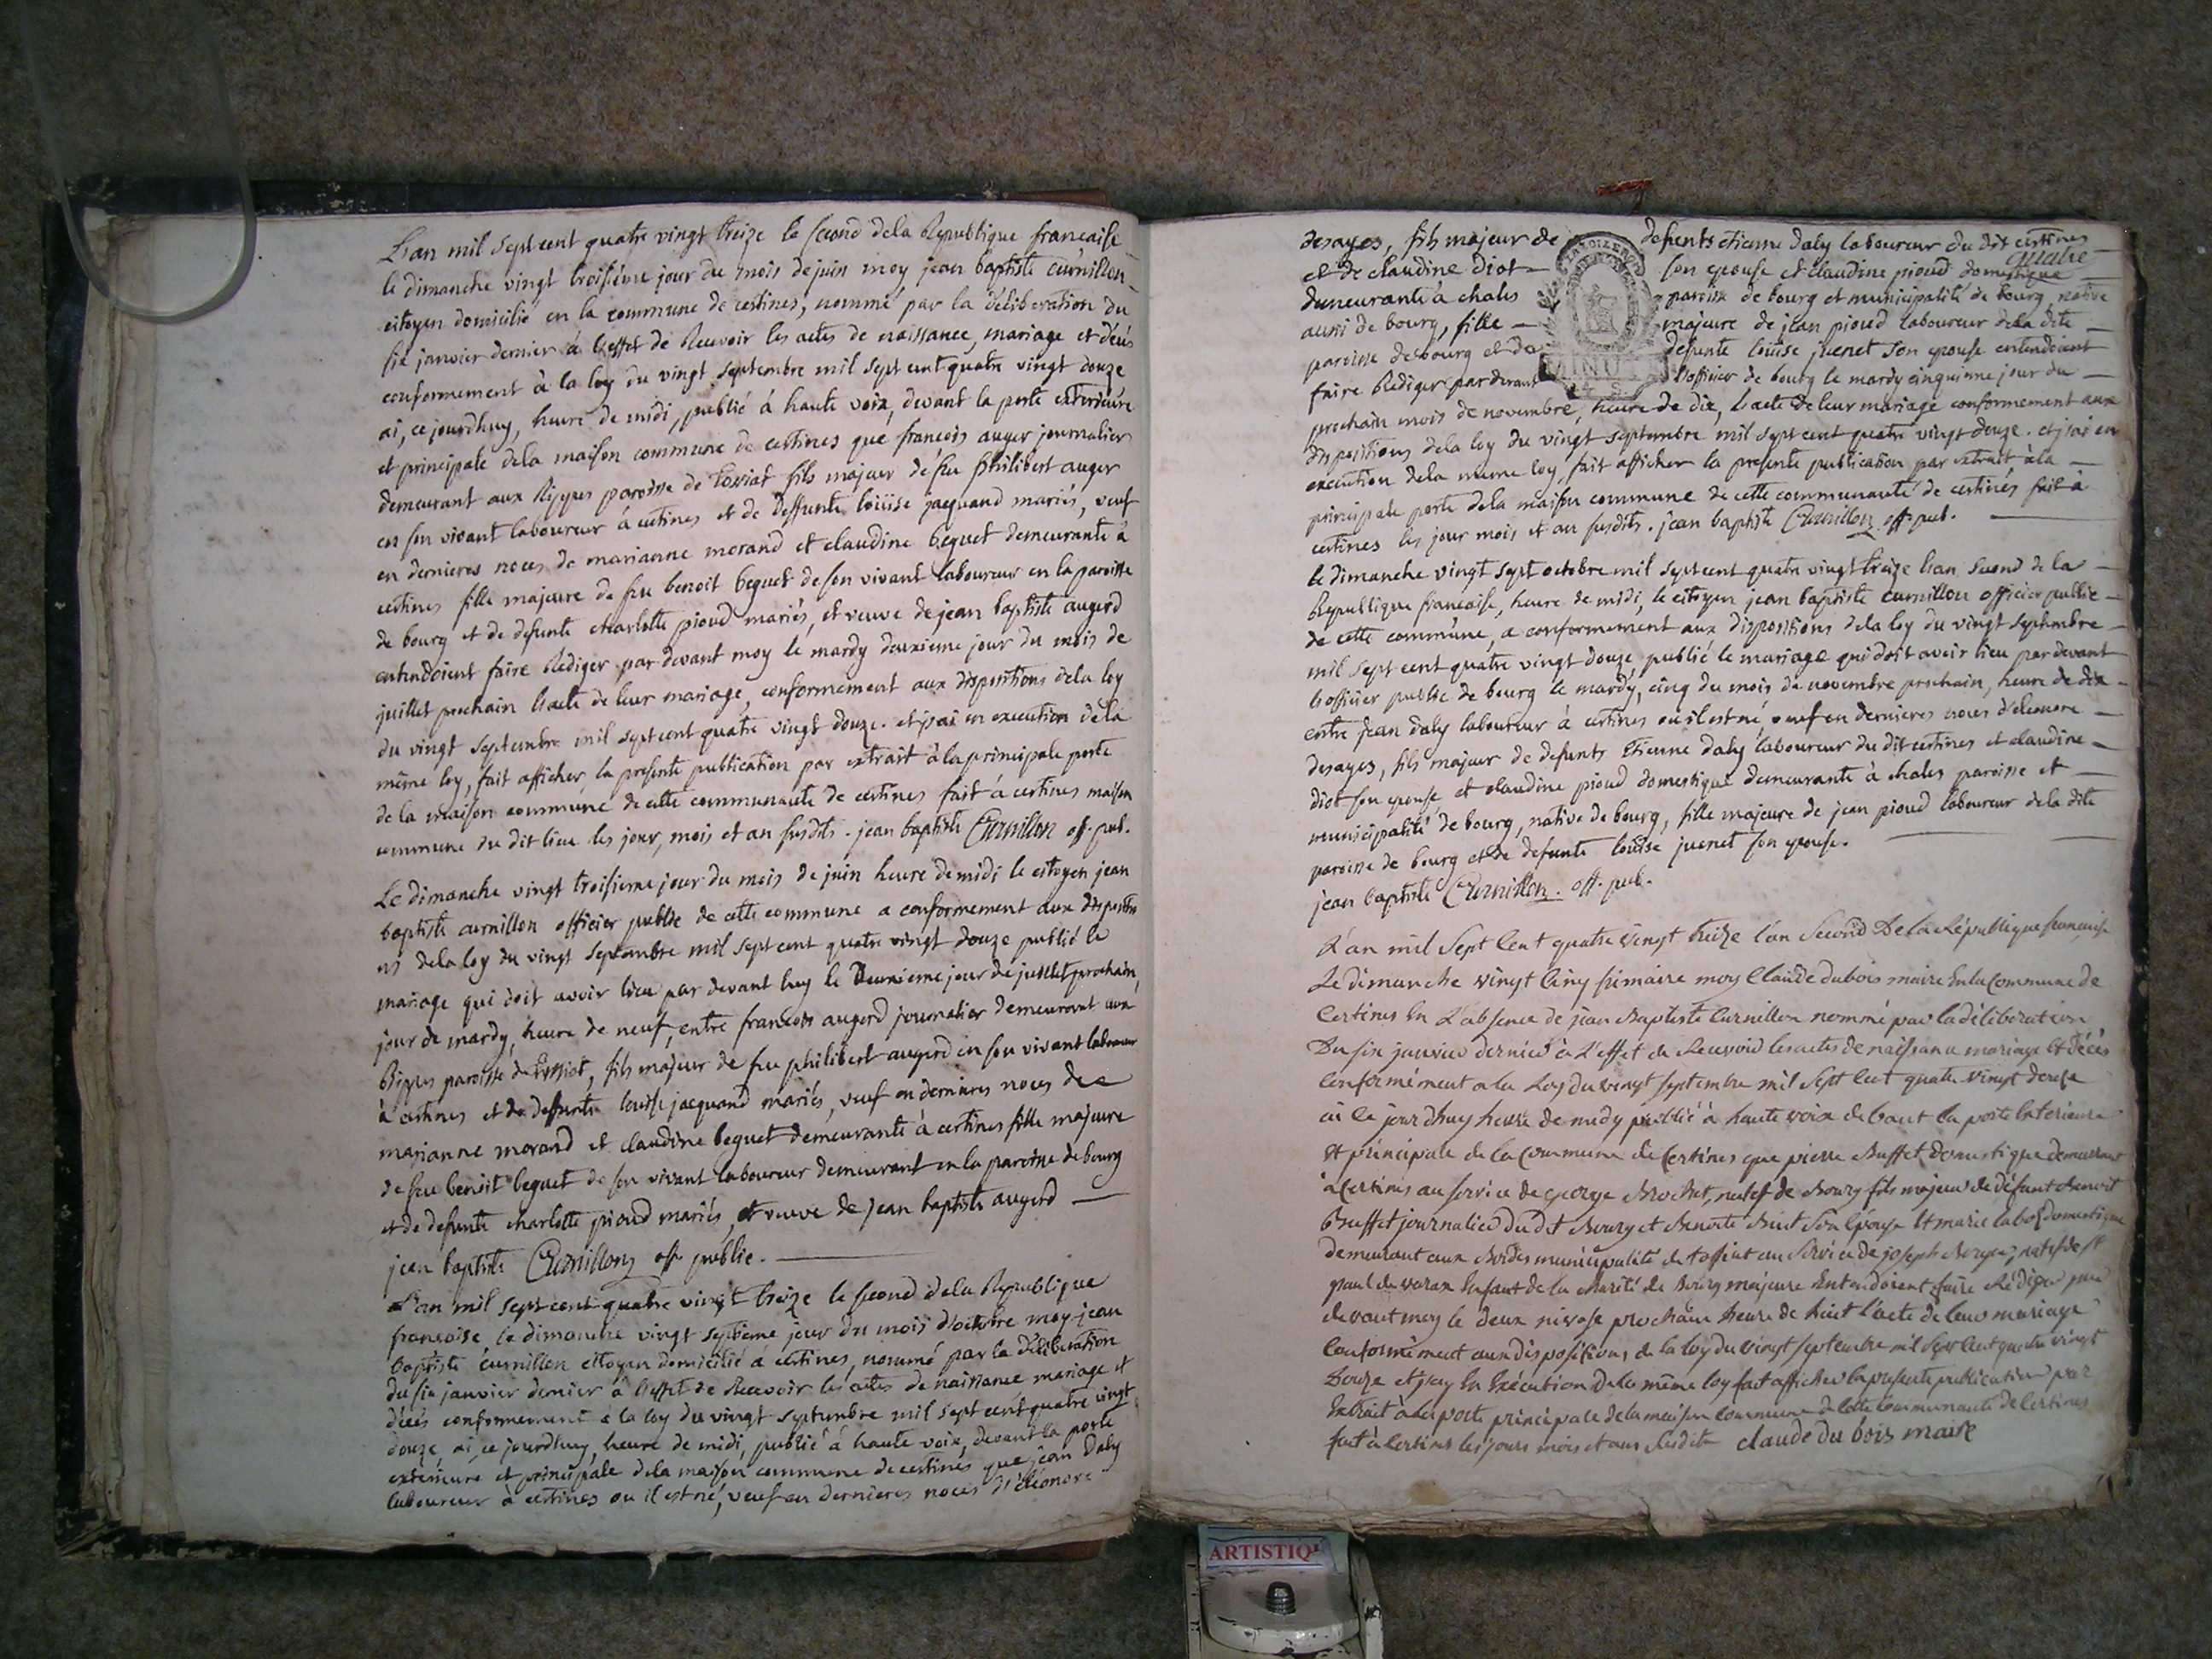 L'an mil sept cent quatre vingt treize le second dela Republique francaise
le dimanche vingt troisiéme jour du mois de juin moy jean baptiste curnillon
citoyen domicilié en la commune de certines, nommé par la déliberation du
six janvier dernier à l'effet de Recevoir les actes de naissance, mariage et décés
conformement à la loy du vingt septembre mil sept cent quatre vingt douze
ai, ce jourdhuy, heure de midi, publié à haute voix, devant la porte exterieure
et principale dela maison commune de certines que francois auger journalier
demeurant aux Rippes paroisse de fils majeur de feu philibert auger
en son vivant laboureur à certines et de deffunte louise jacquand mariés, veuf
en dernieres noces de marianne morand et claudine beguet demeurante à
certines fille majeure de feu benoit beguet de son vivant laboureur en la paroisse
de bourg et de defunte charlotte pioud mariés, et veuve de jean baptiste augerd
entendoient faire Rédiger par devant moy le mardy deuxieme jour du mois de
juillet prochain l'acte de leur mariage, conformement aux dispositions dela loy
du vingt septembre mil sept cent quatre vingt douze. et j'ai en execution dela
même loy, fait afficher la presente publication par extrait à la principale porte
de la maison commune de cette communauté de certines fait à certines maison
commune du dit lieu les jour, mois et an susdits. jean baptiste Curnillon off. pub.
Le dimanche vingt troisieme jour du mois de juin heure de midi le citoyen jean
baptiste curnillon officier public de cette commune a conformement aux dispositio
ns dela loy du vingt septembre mil sept cent quatre vingt douze publié le
mariage qui doit avoir lieu par devant luy le deuxieme jour de juillet prochain,
jour de mardy, heure de neuf, entre francois augerd journalier demeurant aux
Rippes paroisse de fils majeur de feu philibert augerd en son vivant laboureur
à certines et de deffunte louise jacquand mariés, veuf en dernieres noces de
marianne morand et claudine beguet demeurante à certines fille majeure
de feu benoit beguet de son vivant laboureur demeurant en la paroisse de bourg
et de defunte charlotte pioud mariés, et veuve de jean baptiste augerd
jean baptiste Curnillon off. public.
L'an mil sept cent quatre vingt treize le second dela Republique
francaise le dimanche vingt septieme jour du mois d'octobre moy jean
baptiste curnillon citoyen domicilié à certines, nommé par la déliberation
du six janvier dernier à l'effet de Recevoir les actes de naissance mariage et
décés conformement à la loy du vingt septembre mil sept cent quatre vingt
douze, ai, ce jourdhuy, heure de midi, publié à haute voix, devant la porte
exterieure et principale dela maison commune de certines que jean Daly
laboureur à certines ou il est né, veuf en dernieres noces d'éléonore
desayes, fils majeur de defunts etienne daly laboureur du dit certines
quatre
et de claudine diot son epouse et claudine pioud domestique
demeurante à chales paroisse de bourg et municipalité de bourg, native
aussi de bourg, fille majeure de jean pioud laboureur dela dite
paroisse de bourg et de defunte louise juenet son epouse entendoient
faire Rediger par devant l'officier de bourg le mardy cinquieme jour du
prochain mois de novembre, heure de dix, l'acte de leur mariage conformement aux
dispositions dela loy du vingt septembre mil sept cent quatre vingt douze. et j'ai en
execution dela meme loy, fait afficher la presente publication par extrait à la
principale porte dela maison commune de cette communauté de certines fait à
certines les jour mois et an susdits. jean baptiste Curnillon off. pub.
le dimanche vingt sept octobre mil sept cent quatre vingt treize l'an second de la
Republique francaise, heure de midi, le citoyen jean baptiste curnillon officier public
de cette commune, a conformement aux dispositions dela loy du vingt septembre
mil sept cent quatre vingt douze publié le mariage qui doit avoir lieu par devant
l'officier public de bourg le mardy, cinq du mois de novembre prochain, heure de dix
entre jean daly laboureur à certines ou il est né, veuf en dernieres noces d'eleonore
desayes, fils majeur de defunts Etienne daly laboureur du dit certines et claudine
diot son epouse, et claudine pioud domestique demeurante à chales paroisse et
municipalité de bourg, native de bourg, fille majeure de jean pioud laboureur dela dite
paroisse de bourg et de defunte louise juenet son epouse.
jean baptiste Curnillon. off. pub.
L'an mil sept Cent quatre vingt treize l'an Second De la République francaise
Le dimanche vingt Cinq frimaire moy Claude dubois maire En la Commune de
Certines En L'absence de jean Baptiste Curnillon nommé par la déliberation
Du six janvier dernier à L'effet de Recevoir les actes de naissance mariage Et Décès
Conformément a la Loy du vingt septembre mil Sept Cent quatre vingt douze
ai Ce jourdhuy heure de midy publié à haute voix devant la porte Exterieure
Et principale de la Commune de Certines que pierre Buffet domestique demeurant
à Certines au service de George Brochet, natif de Bourg fils majeur de Défunt Benoit
Buffet journalier Du dit Bourg et Benoite Son Epouse Et marie domestique
demeurant aux Bordes municipalité de tossiat au Service de joseph natif de st
paul de varax Enfant de la charité de Bourg majeure Entendoient faire Rédiger par
devant moy le deux nivose prochain heure de huit L'acte de leur mariage
Conformément aux dispositions de la loy du vingt septembre mil Sept Cent quatre vingt
Douze et jay En Exécution De la même loy fait afficher la presente publication par
Extrait à la porte principale de la maison Commune de Cette Communauté de Certines
fait à Certines les jours mois et ans Susdits claude du bois maire
ARTISTIQ